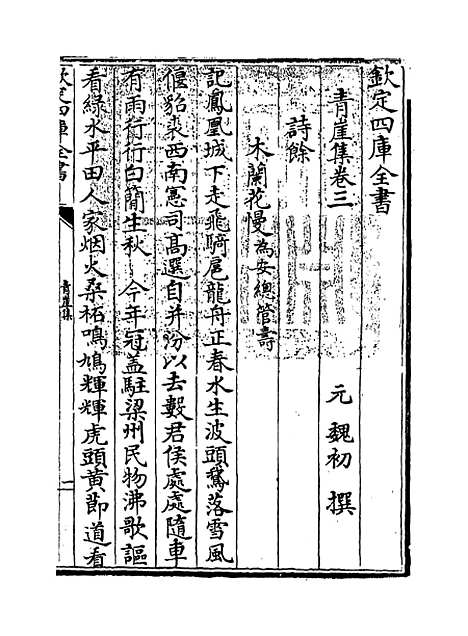 欽定四庫全書
青崖集卷三
元 魏初 撰
詩餘
木蘭花慢為安總管壽
記鳳凰城下走飛騎扈龍舟正春水生波頭鵞落雪風
偃貂裘西南憲司髙選自并汾以去數君侯處處隨車
有雨行行白簡生秋 今年冠盖駐梁州民物沸歌謳
看綠水平田人家烟火桑柘鳴鳩輝輝虎頭黄節道看
欽定四庫全書
青崖集
一